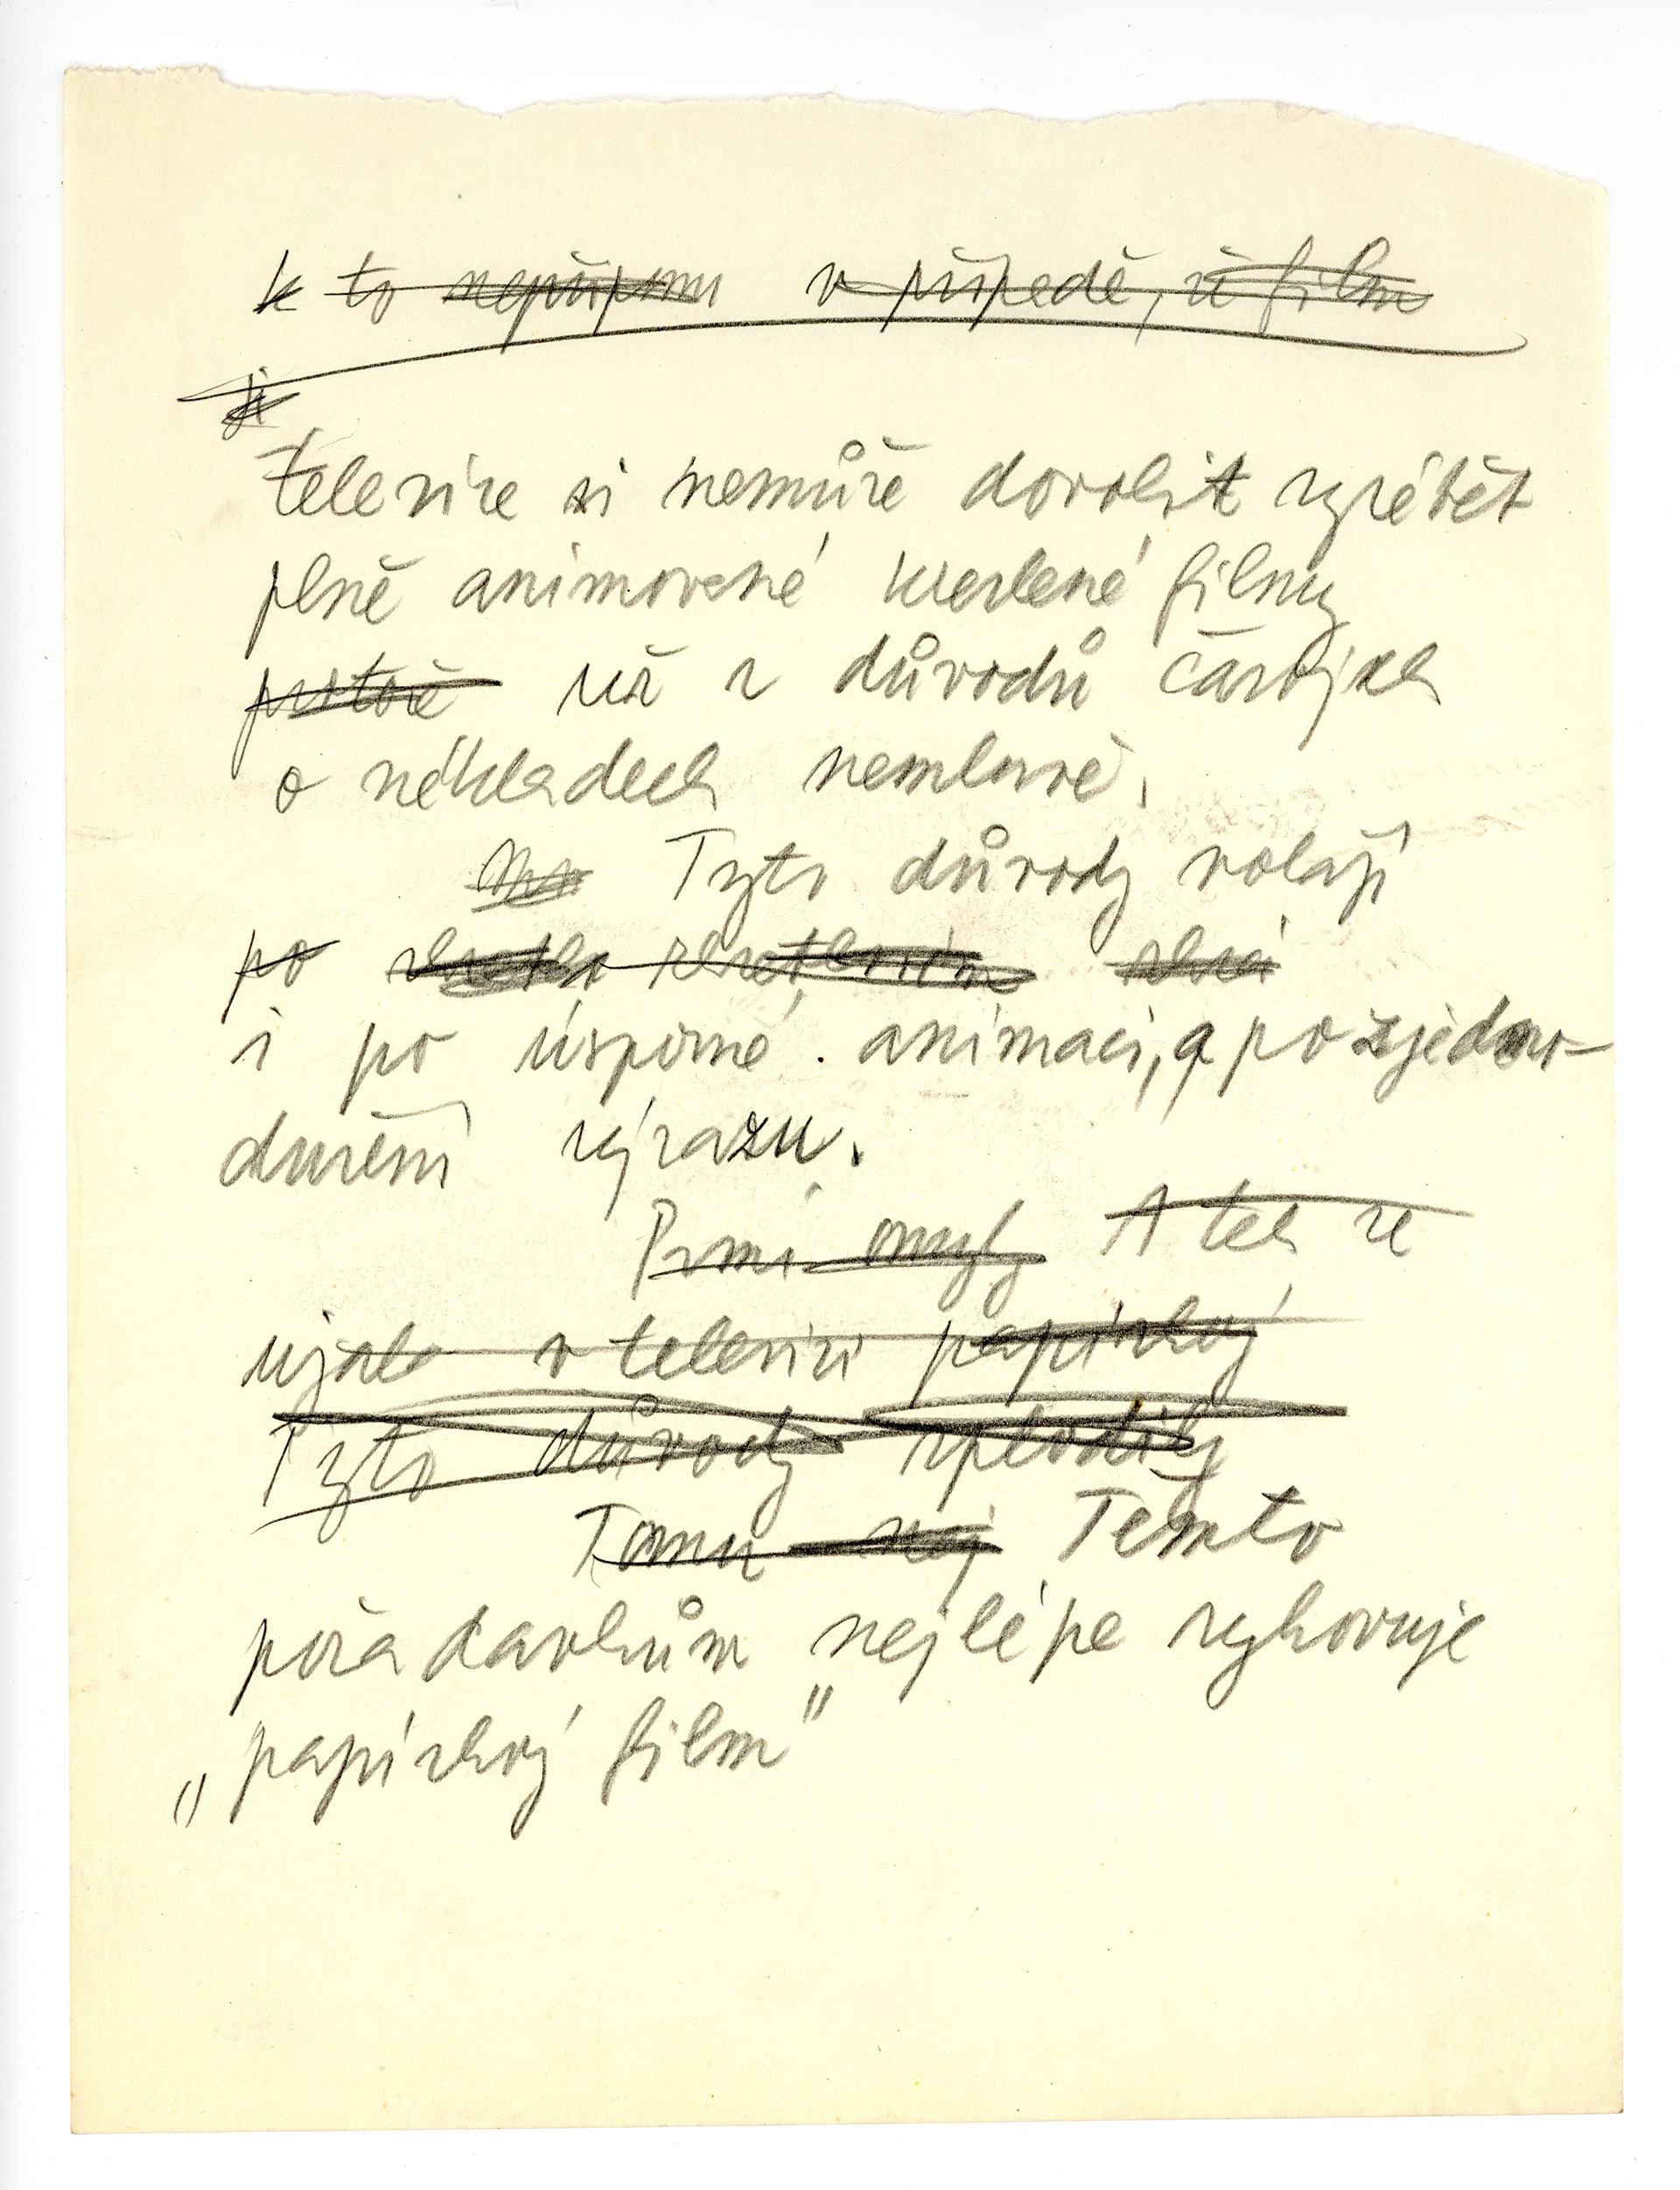 je to nepříjemné v případě, že film
je
televize si nemůže dovolit vyrábět
plně animované kreslené filmy
protože už z důvodů časových
o nákladech nemluvě.
Tyto důvody volají
po
i po úsporné animaci, a po zjedno-
dušení výrazu.
První A tak se
ujalo v televizi papírkový
Tyto důvody zplodily
Tomu nej Těmto
požadavkům nejlépe vyhovuje
„papírkový film"